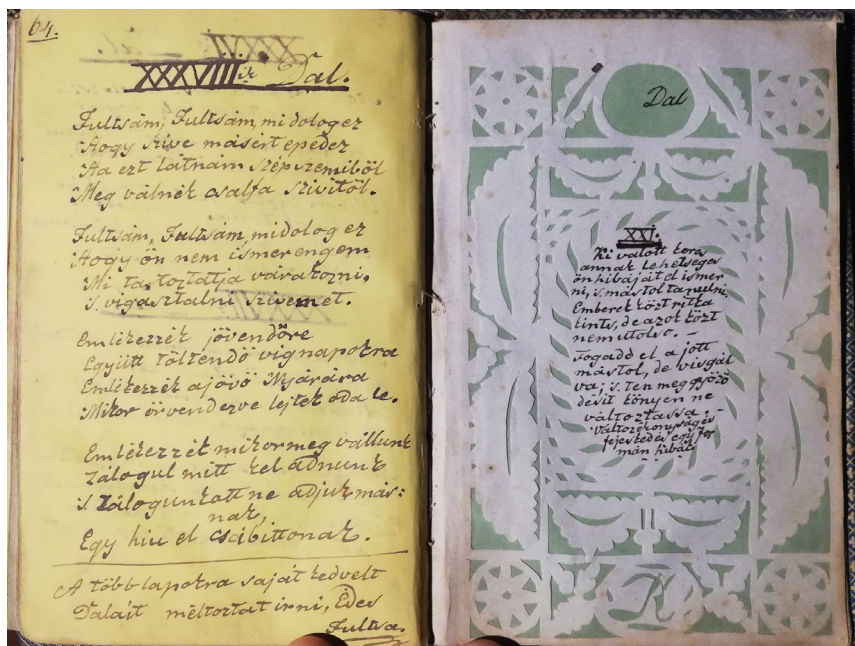 64.
XXXVIIIIik Dal.
Fultsám, Fultsám, mi dolog ez
Hogy szive másért epedez
Ha ezt látnám szép szemiböl
Meg válnék csalfa szivitöl.
Fultsám, Fultsám, mi dolog ez
Hogy ön nem ismer engem
Mi
várakozni,
S vigasztalni szivemet.
Emlékezzék jövendöre
Együtt töltendö vig napokra
Emlékezzék a jövö Nyárára
Mikor örvendezve lejtek oda le.
Emlékezzék mikor meg vállunk
Zálogul mitt kel adnunk
S Zálogunkatt ne adjuk más:
nak,
Egy hiu el csábittonak.
A több lapokra saját kedvelt
Dalait méltoztat irni, Édes
Fultsa.
Dal
XXI.
Ki valott kora
annak lehetséges
ön hibáját el ismer
ni, s mástol tanulni,
Emberek közt ritka
kints, de azok közt
nem uttolso. –
Fogadd el a jott
mástol, de visgál
va; s ten meg gyözö
désit könyen ne
változtassa. –
Változékonyság és
fejeskedés egy for
mán hibák
K